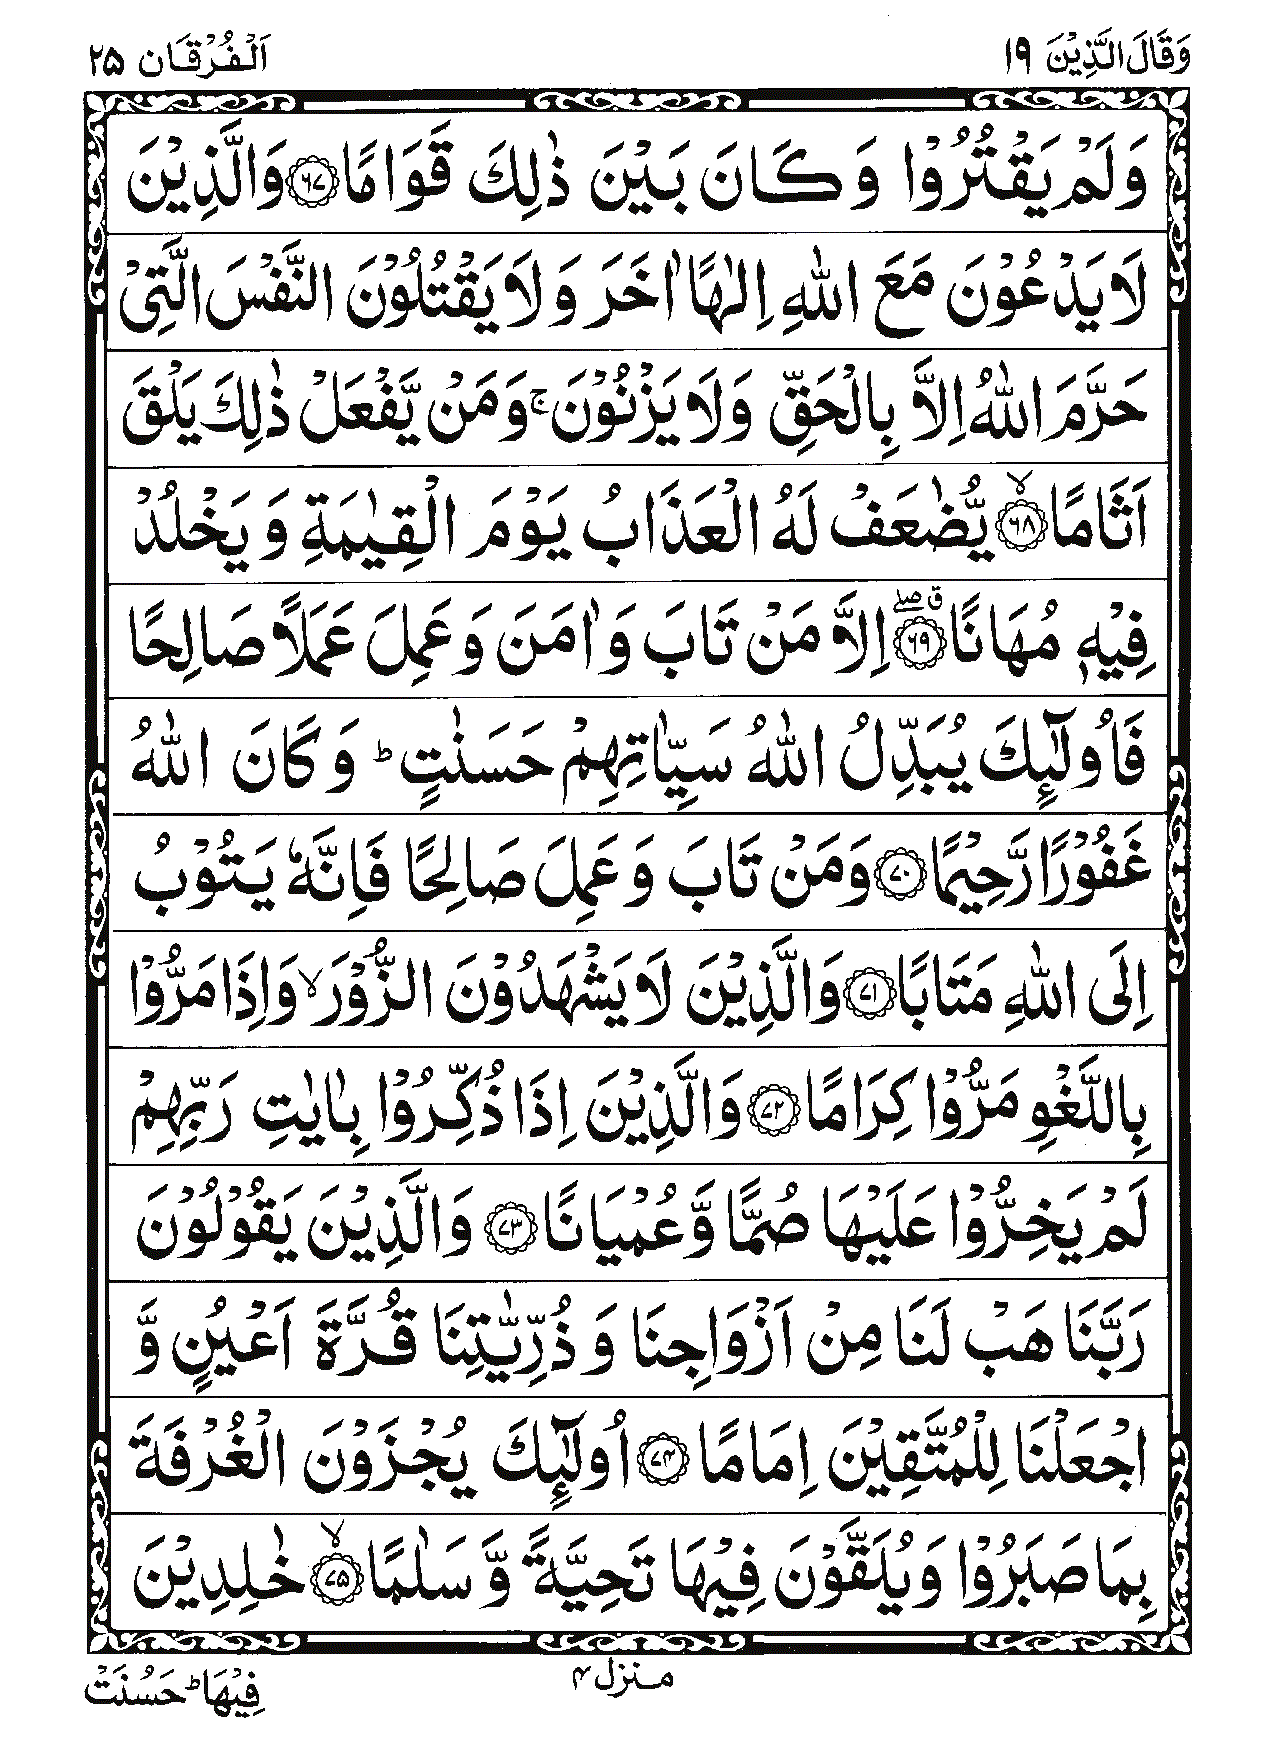 وَقَالَ الَّذِيْنَ ١٩ اَلْفُرْقَان ٢٥
وَلَمْ يَقْتُرُوْا وَ كَانَ بَيْنَ ذٰلِكَ قَوَامًا ﴿٦٧﴾ وَالَّذِيْنَ
لَا يَدْعُوْنَ مَعَ اللّٰهِ اِلٰهًا اٰخَرَ وَ لَا يَقْتُلُوْنَ النَّفْسَ الَّتِيْ
حَرَّمَ اللّٰهُ اِلَّا بِالْحَقِّ وَلَا يَزْنُوْنَ ۚ وَمَنْ يَّفْعَلْ ذٰلِكَ يَلْقَ
اَثَامًا ۙ﴿٦٨﴾ يُّضٰعَفْ لَهُ الْعَذَابُ يَوْمَ الْقِيٰمَةِ وَ يَخْلُدْ
فِيْهٖ مُهَانًا ۗۖ﴿٦٩﴾ اِلَّا مَنْ تَابَ وَ اٰمَنَ وَ عَمِلَ عَمَلًا صَالِحًا
فَاُولٰٓئِكَ يُبَدِّلُ اللّٰهُ سَيِّاٰتِهِمْ حَسَنٰتٍ ؕ وَ كَانَ اللّٰهُ
غَفُوْرًا رَّحِيْمًا ﴿٧٠﴾ وَمَنْ تَابَ وَ عَمِلَ صَالِحًا فَاِنَّهٗ يَتُوْبُ
اِلَى اللّٰهِ مَتَابًا ﴿٧١﴾ وَالَّذِيْنَ لَا يَشْهَدُوْنَ الزُّوْرَ ۙ وَاِذَا مَرُّوْا
بِاللَّغْوِ مَرُّوْا كِرَامًا ﴿٧٢﴾ وَالَّذِيْنَ اِذَا ذُكِّرُوْا بِاٰيٰتِ رَبِّهِمْ
لَمْ يَخِرُّوْا عَلَيْهَا صُمًّا وَّ عُمْيَانًا ﴿٧٣﴾ وَالَّذِيْنَ يَقُوْلُوْنَ
رَبَّنَا هَبْ لَنَا مِنْ اَزْوَاجِنَا وَ ذُرِّيّٰتِنَا قُرَّةَ اَعْيُنٍ وَّ
اجْعَلْنَا لِلْمُتَّقِيْنَ اِمَامًا ﴿٧٤﴾ اُولٰٓئِكَ يُجْزَوْنَ الْغُرْفَةَ
بِمَا صَبَرُوْا وَ يُلَقَّوْنَ فِيْهَا تَحِيَّةً وَّ سَلٰمًا ۙ﴿٧٥﴾ خٰلِدِيْنَ
منزل ٤
فِيْهَا ؕ حَسُنَتْ